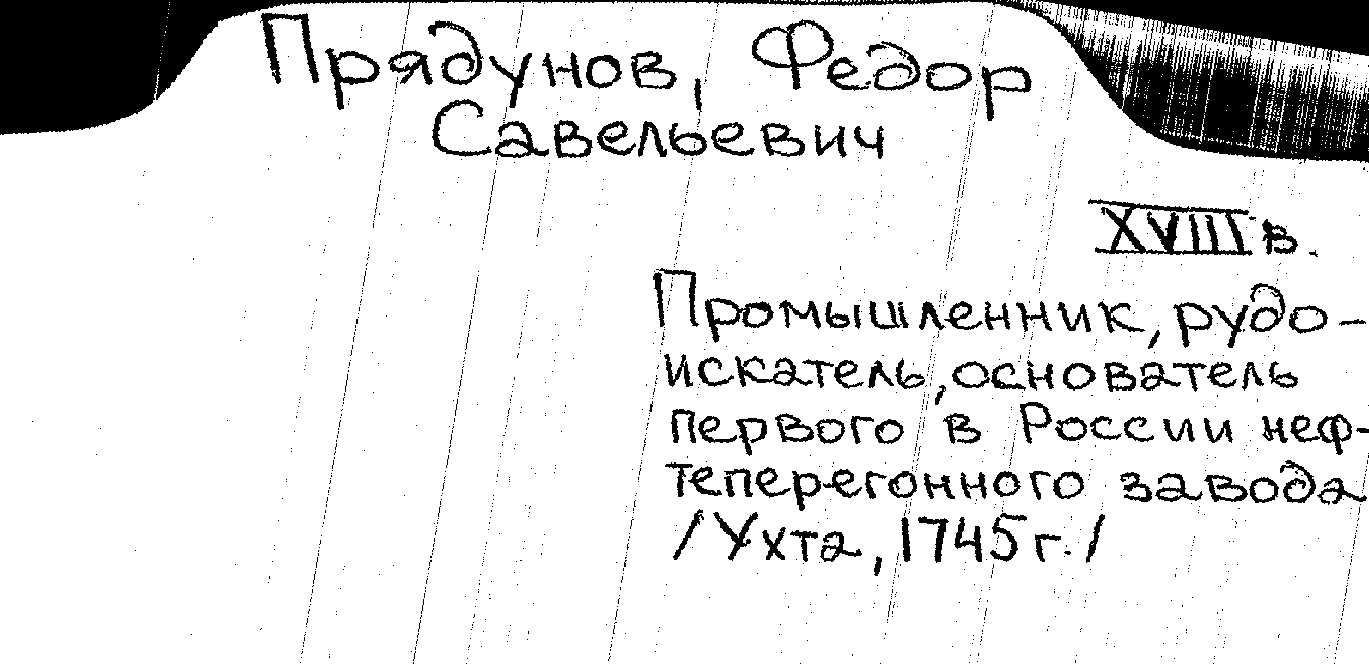 Прядунов, Федор
Савельевич
XVIII в.
Промышленник, рудо-
искатель, основатель
первого в России неф-
теперегонного завода
/Ухта, 1745 г./